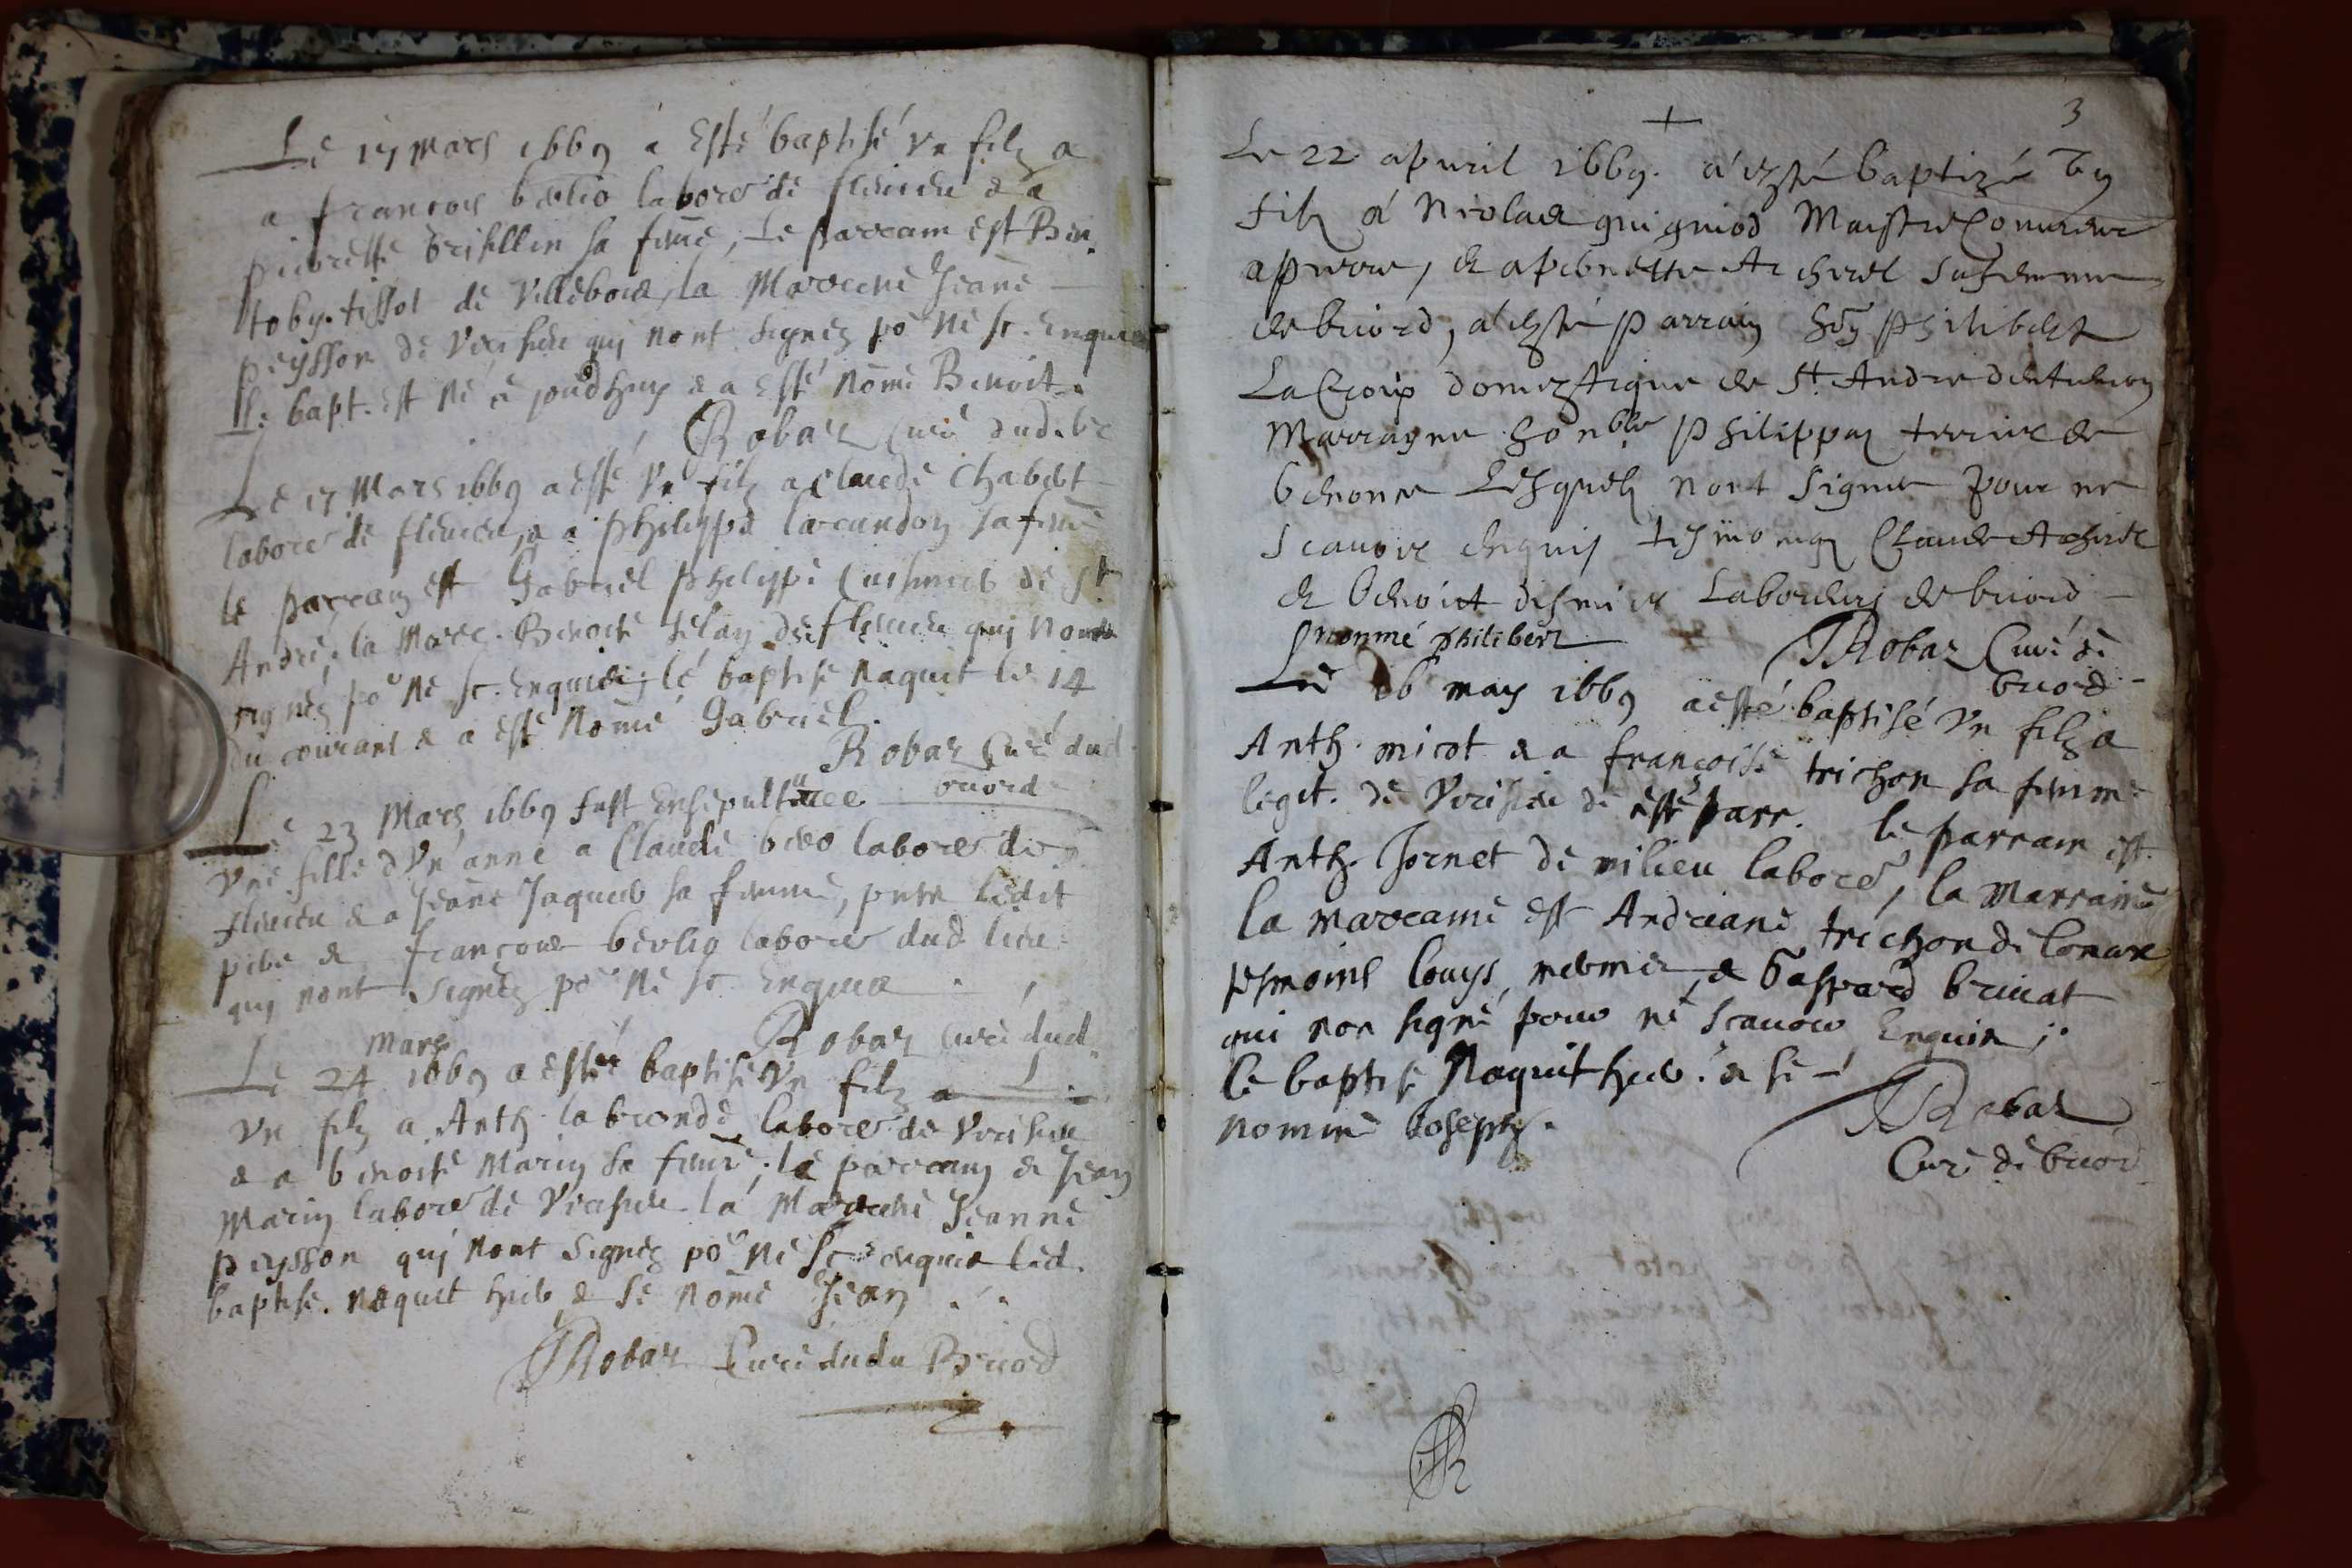 Le 17 Mars 1669 a esté baptisé vn filz a
a françois berlio labore^r de flevieu & a
pierrette brisillin sa fem̃e, Le parrain est Ben.
toby. tissot de Villebois, la Marrene Jeane
peysson de Verisieu quj nont signez po^r ne sc. enquis
le bapt. est né a joudhuy & a esté nõmé Benoit.
Robaz Curé dud. br
Le 17 Mars 1669 a esté vn filz a claude Chabert
labore^r de flevieu, & a philippe lacundon sa fem̃e
le parrain est Gabriel philippe de St
André, la Marr. Benoite de flevieu quj nont
signez po^r ne sc. enquis; le baptise naquit le 14
du courant & a esté nõmé Gabriel.
Robaz Curé dud.
briord
Le 23 Mars 1669 fust Ensepulturee
vne fille d'vn anne a Claude labore^r de
flevieu & a Jeane Jaques sa femme, pnts ledit
pere & françois berlio labore^r dud. lieu
quj nont signez po^r ne sc. enquis.
Robaz Curé dud.
Mars
Le 24 1669 a esté baptisé vn filz a L
vn filz a Anth. la bronde labore^r de Verisieu
& a benoite Marin sa fem̃e; le parrain & Jean
Marin labore^r de Verisieu la Marrene Jeanne
peysson quj nont signez po^r ne sc. enquis led.
baptise. naquit hier & se nõme Jean
Robaz Curé dudu Briord
3
Le 22 apuril 1669. a esté baptizé vn
filz a Nicolas quiquiod Maistre
, & a pernette Archirel sa femme
de briord, a esté parrain hõn philibert
La Croix domestique de St. Andre
Marrayne hon^ble philippaz de
benonce Lesquels nont signer pour ne
scauoir enquis tesmoings Claude Achirel
& benoit Laboreurs de briord
nommé philibert
Robaz Curé de
briord
Le 16 may 1669 a esté baptisé vn filz a
Anth. micot & a françoise trichon sa femme
legit. de Verisieu de este parr. le parrain est
Anth. Jornet de milieu labore^r, la marraine
la marraine est Andreane trichon de lonax
tesmoins Louys & Gaspard bruiat
qui non signé pour ne scauoir Enquis;
le baptisé Naquit hier. & se
nomme Joseph.
Robaz
Curé de briord